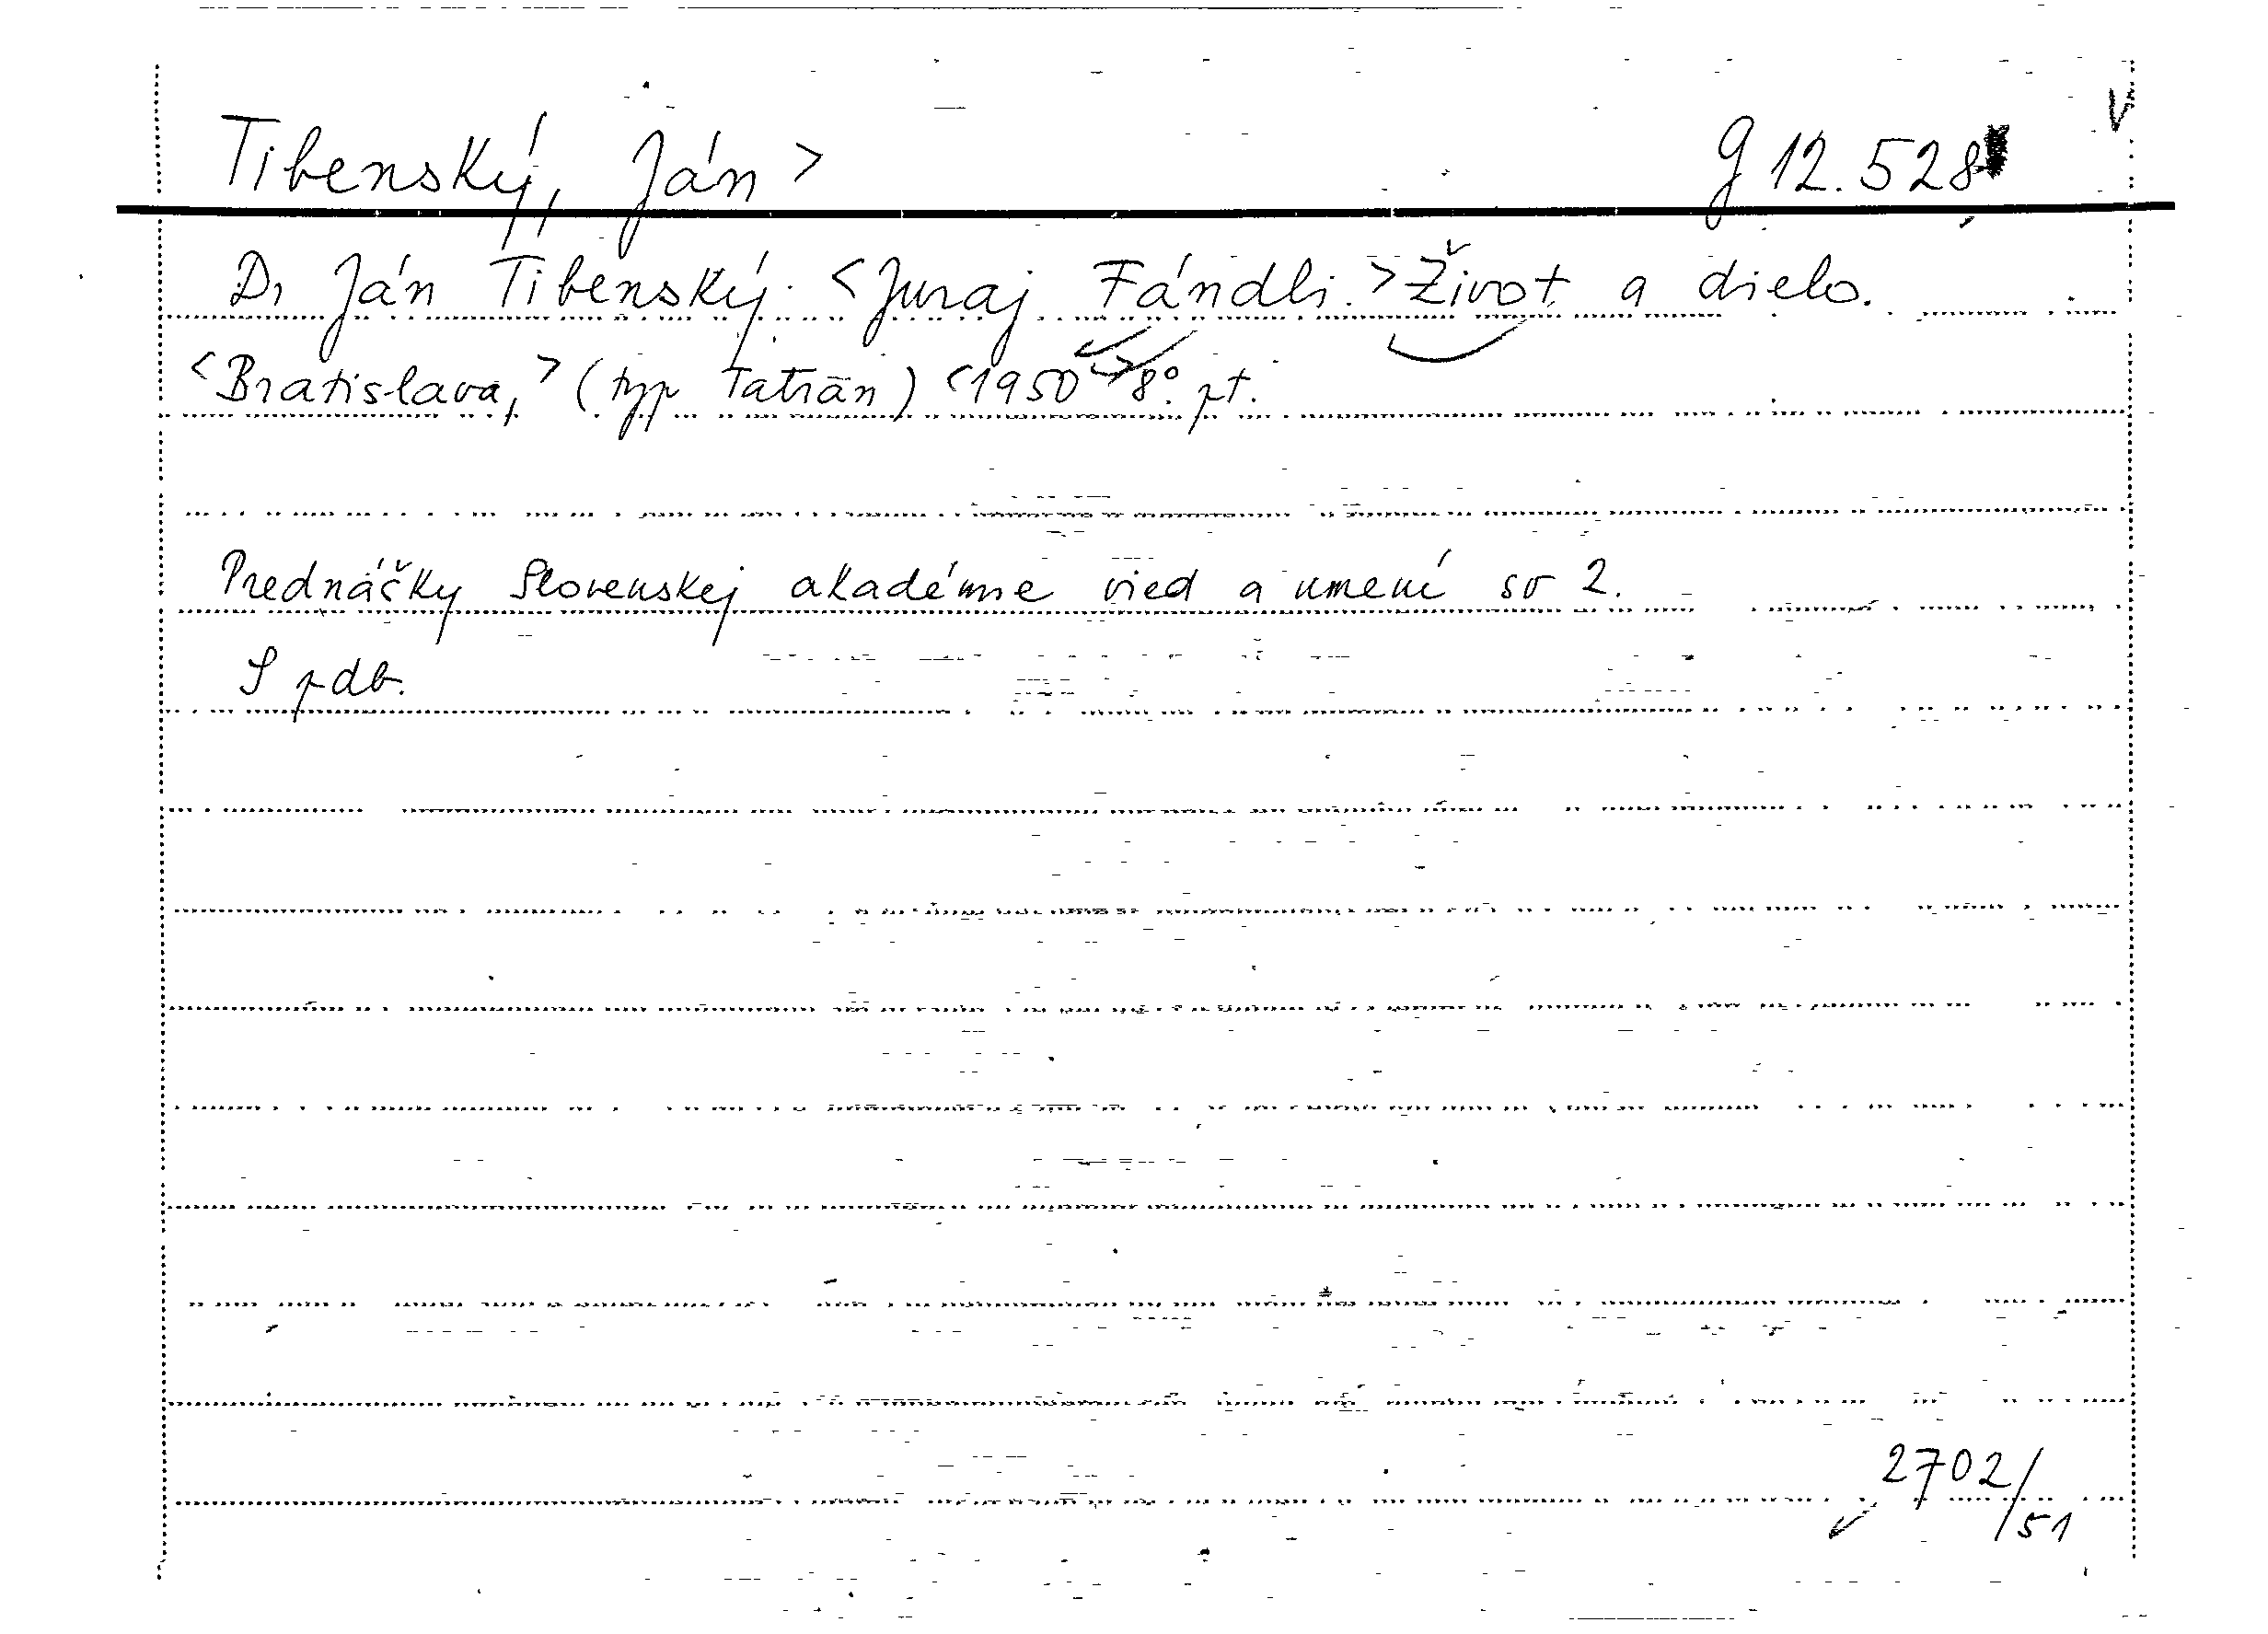 Tibenský, Ján > G 12.528
Dr Ján Tibenský. <Juraj Fándli.> Život a dielo.
<Bratislava,> (typ Tatrán) <1950> 8°. pt.
Prednášky Slovenskej akadémie vied a umení sv 2.
S pdb.
2702/51